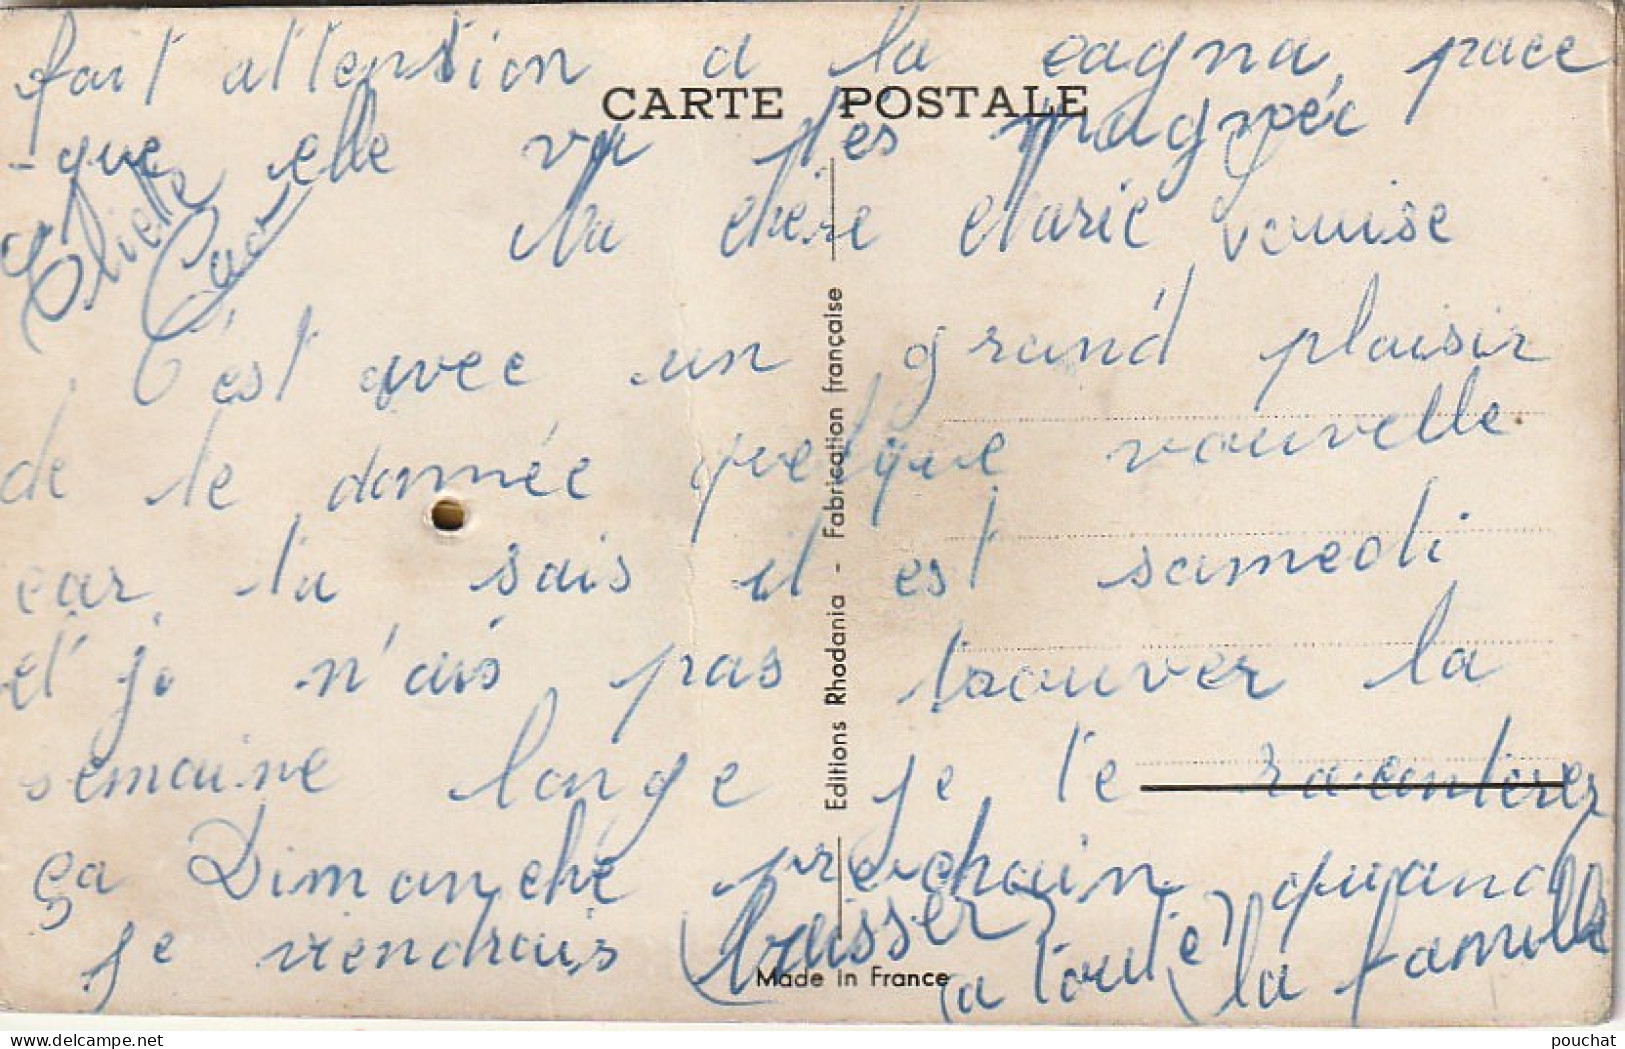 fait attention a la cagna, parce
CARTE POSTALE
-que elle va
Eliette
Ma chère Marie Louise
C'est avec un grand plaisir
de te donnée quelque nouvelle
car tu sais il est samedi
et je n'ais pas trouver la
semaine longe je te raconterez
ça Dimanche prochain quand
je viendrais (baisser)
(a toute) (la famille
Editions Rhodania - Fabrication française
Made in France
delcampe.net
pouchat